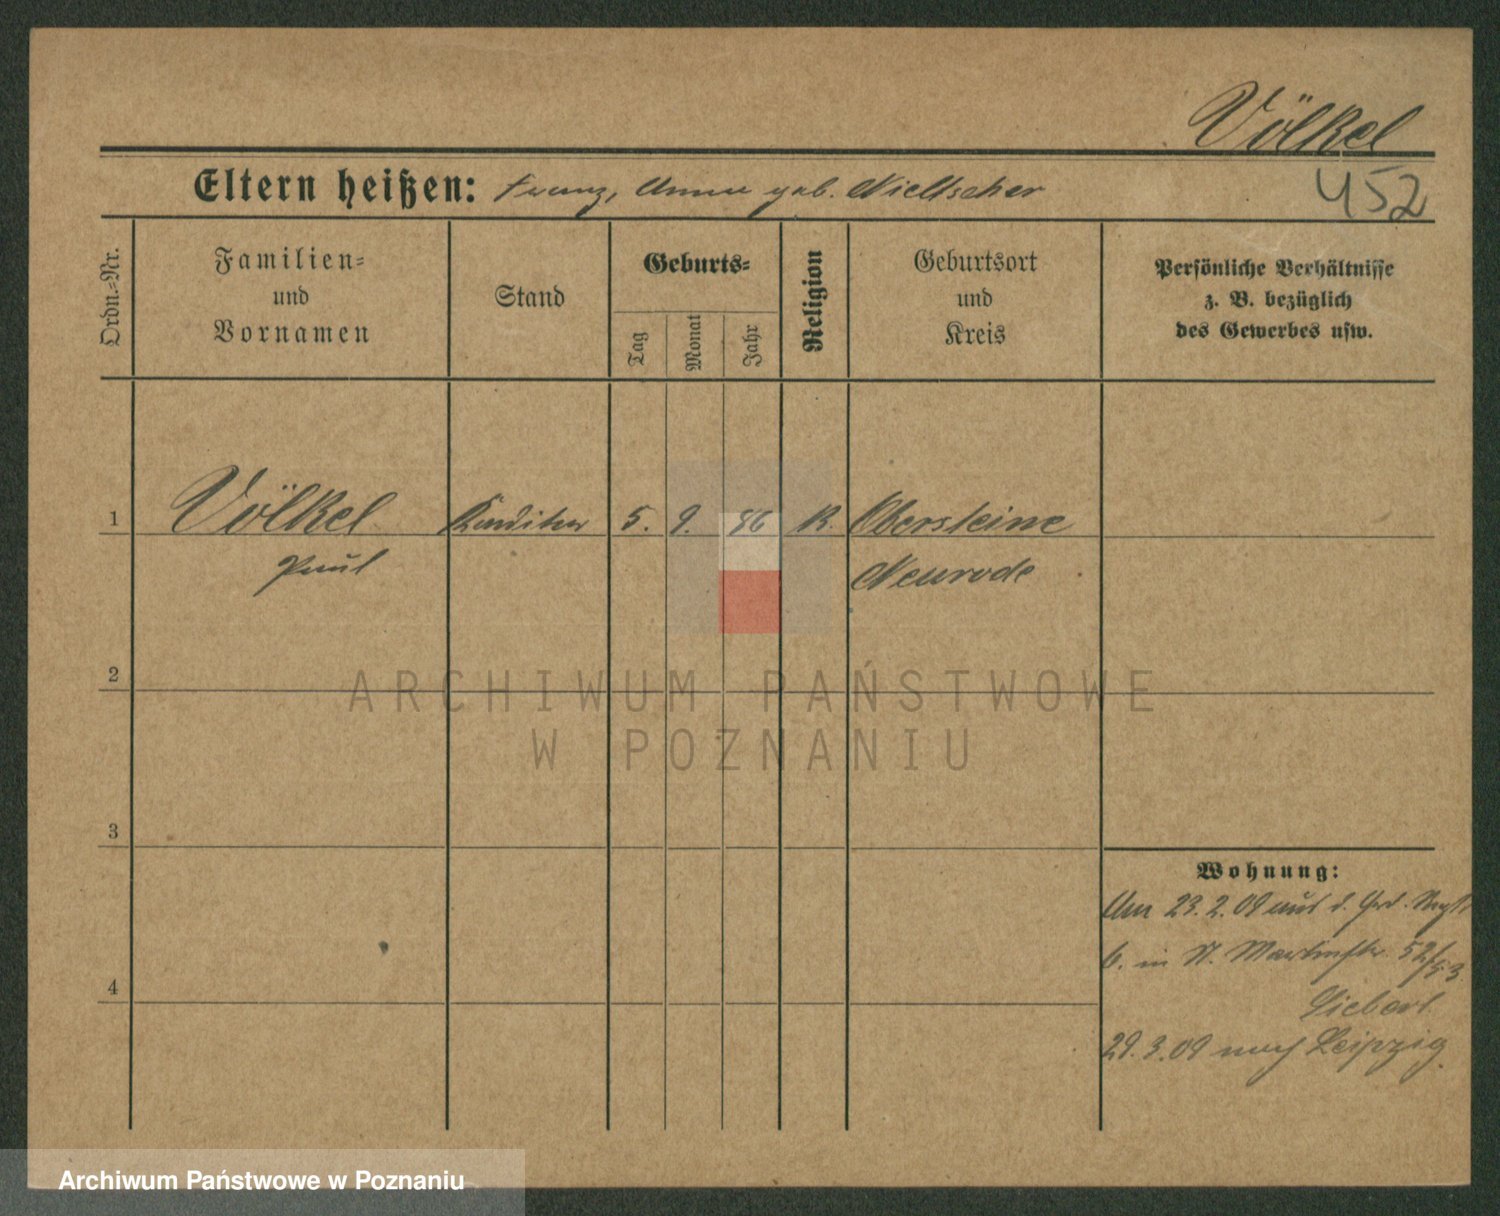 Völkel
Eltern heißen: Franz, Anna geb. Nieltscher
452
Ordn.=Nr.
Familien=
und
Vornamen
Stand
Geburts=
Tag
Monat
Jahr
Religion
Geburtsort
und
Kreis
Persönliche Verhältnisse
z. B. bezüglich
des Gewerbes usw.
1 Völkel Konditor 5. 9. 86 R. Obersteine
Paul Neurode
2
ARCHIWUM PAŃSTWOWE
W POZNANIU
3
Wohnung:
Am 23.2.09 aus d.
b. in St. Martinstr. 52/53
4
Siebert
29.3.09 nach Leipzig.
Archiwum Państwowe w Poznaniu